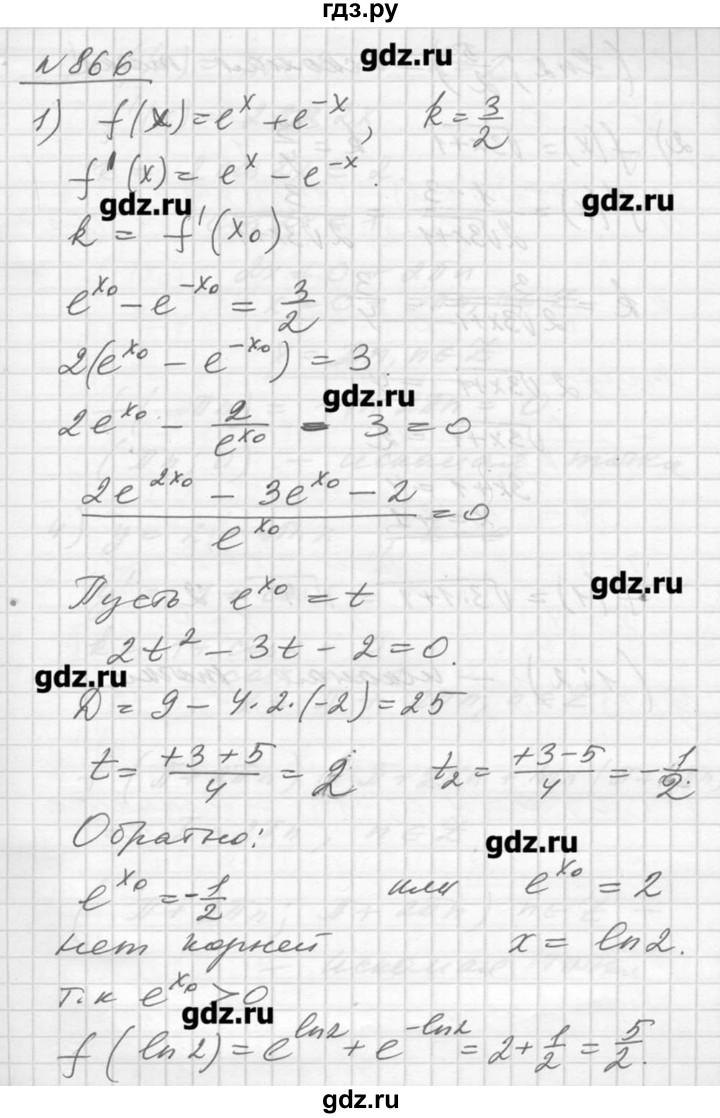 гдз.ру
gdz.ru
№866
1) f(x) = e^x + e^{-x}, k = 3/2
f'(x) = e^x - e^{-x}.
gdz.ru
gdz.ru
k = f'(x₀)
e^{x₀} - e^{-x₀} = 3/2
2(e^{x₀} - e^{-x₀}) = 3
gdz.ru
2e^{x₀} - 2/e^{x₀} - 3 = 0
(2e^{2x₀} - 3e^{x₀} - 2)/e^{x₀} = 0
gdz.ru
Пусть e^{x₀} = t
2t² - 3t - 2 = 0.
gdz.ru
D = 9 - 4·2·(-2) = 25
t = (+3+5)/4 = 2 t₂ = (+3-5)/4 = -1/2
Обратно:
gdz.ru
e^{x₀} = -1/2 или e^{x₀} = 2
нет корней x = ln2.
т.к e^{x₀} > 0
gdz.ru
f(ln2) = e^{ln2} + e^{-ln2} = 2 + 1/2 = 5/2.
gdz.ru